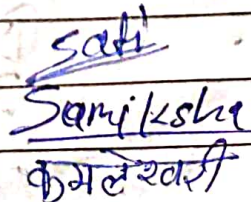 Sati
Samiksha
कमलेश्वरी